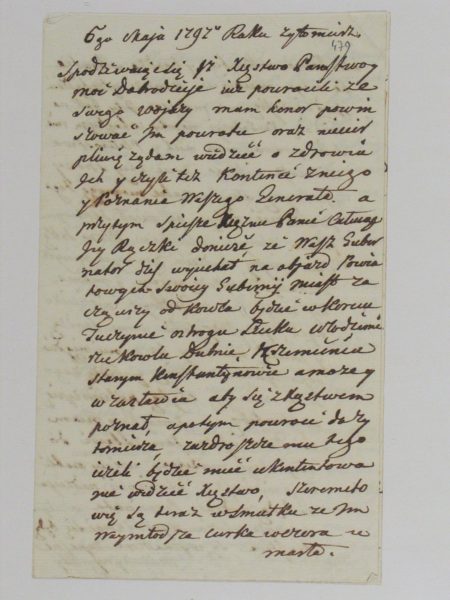 6go Maja 1797o Roku Zytomirz
479
Spodziwaiąc się iż Xięstwo Państwo
mość Dobrodzieje iuż powrócili ze
swego wojażu mam honor powin
szować Im powrotu oraz niecier
pliwię żądam widzieć o zdrowiu
Ich y czyli też kontenci z niego
y Poznania Naszego Generała. a
przytym spieszę Xiężnie Pani całuiąc
Jey Rączki donieść że Nasz Guber
nator dziś wyjechał na objazd Powia
towych swoiey Gubernij miast za
czowszy od Kowla będzie w Korcu
Tuczynie ostrogu Łucku Włodzimi
rzu Kowlu Dubnie Krzemieńcu
starym Konstantynowie a może y
w Zasławiu aby się z Xięstwem
poznał, a potym powroci do Ży
tomirza, zazdroszczę mu tego
ieżeli będzie mieć ukontentowa
nie widzieć Xięstwo, Szeremeto
wie są teraz w smutku że Im
naymłodsza curka wczora u
marła.